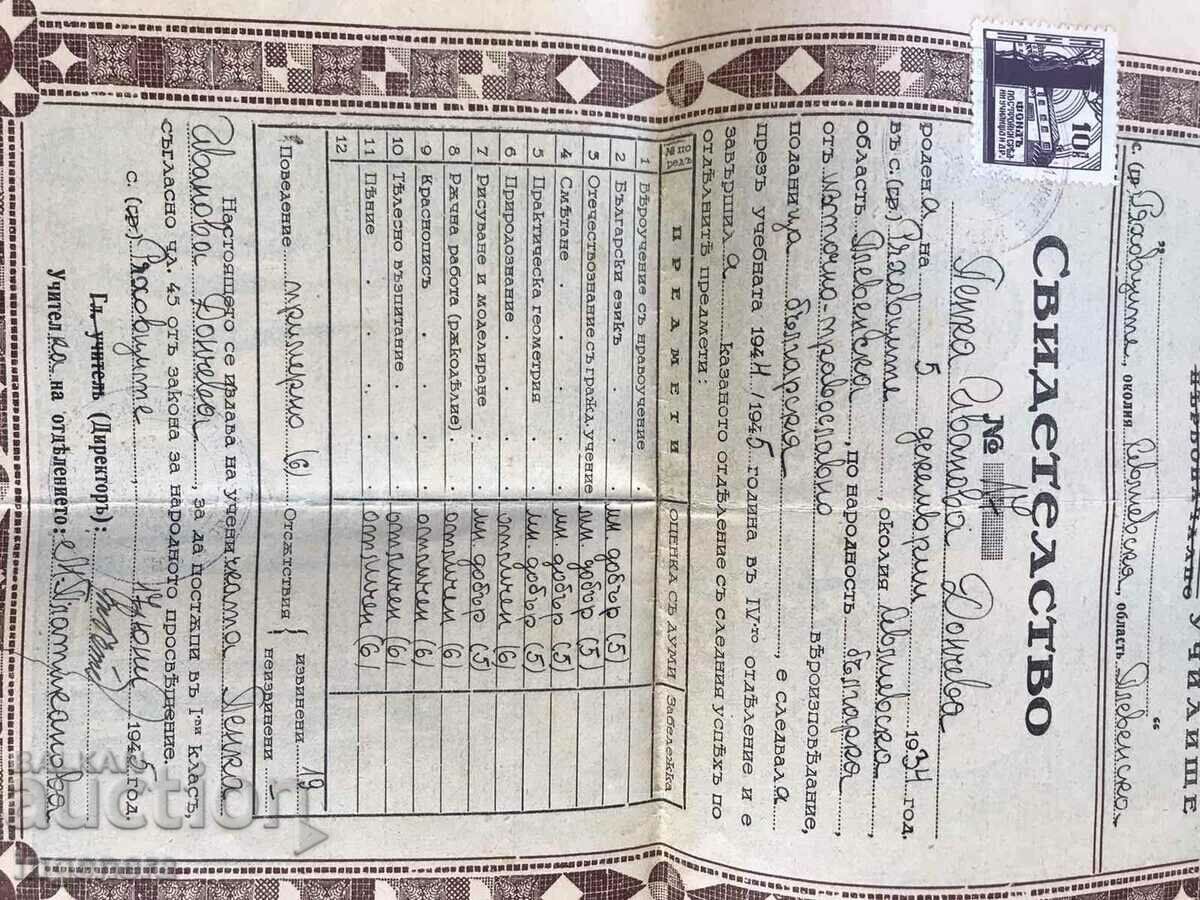 УЧИЛИЩЕ
„ “
с. (гр.) Ряховците, околия Севлиевска, область Плевенска
СВИДЕТЕЛСТВО
№ 14
Пенка Иванова Дончева
родена на 5 декемврий 1934 год.
въ с. (гр.) Ряховците, околия Севлиевска
область Плевенска, по народность българка
отъ источно-православно вѣроизповѣдание,
поданица българска, е следвала
презъ учебната 1944/1945 година въ IV-то отдѣление и е
завършила казаното отдѣление съ следния успѣхъ по
отдѣлнитѣ предмети:
№ по редъ ПРЕДМЕТИ ОЦЕНКА СЪ ДУМИ Забележка
1 Вѣроучение съ нравоучение
2 Български езикъ . мн. добър (5)
3 Отечествознание съ гражд. учение мн. добър (5)
4 Смѣтане . . . мн. добър (5)
5 Практическа геометрия . мн. добър (5)
6 Природознание . . отличен (6)
7 Рисуване и моделиране . мн. добър (5)
8 Ржчна работа (ржкодѣлие) . отличен (6)
9 Краснописъ . . отличен (6)
10 Тѣлесно възпитание . . отличен (6)
11 Пѣние . . . . отличен (6)
12
Поведение примерно (6) Отсѫтствия { извинени 19
неизвинени –
Настоящето се издава на ученичката Пенка
Иванова Дончева, за да постѫпи въ I-ви класъ,
съгласно чл. 45 отъ закона за народното просвѣщение.
с. (гр.) Ряховците, 17 юни 1945 год.
Гл. учитель (Директоръ):
Учителка на отдѣлението:
ФОНДЪ
ПОСТРОЙКИ СРѢД
НИ УЧИЛИЩА
10 ЛВ.
ВАЛКАН
auction